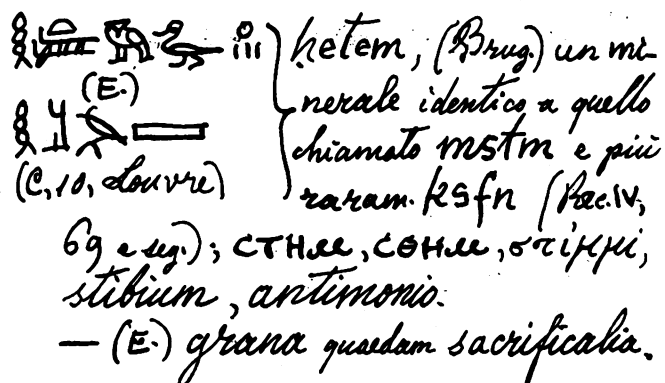 ḥetem, (Brug.) un mi-
(E.) nerale identico a quello
chiamato mstm e più
(C, 10, Louvre) raram. ksfn (Rec. IV,
69 e seg.); ⲥⲧⲏⲙ, ⲥⲑⲏⲙ, στίμμι,
stibium, antimonio.
— (E.) grana quaedam sacrificalia.